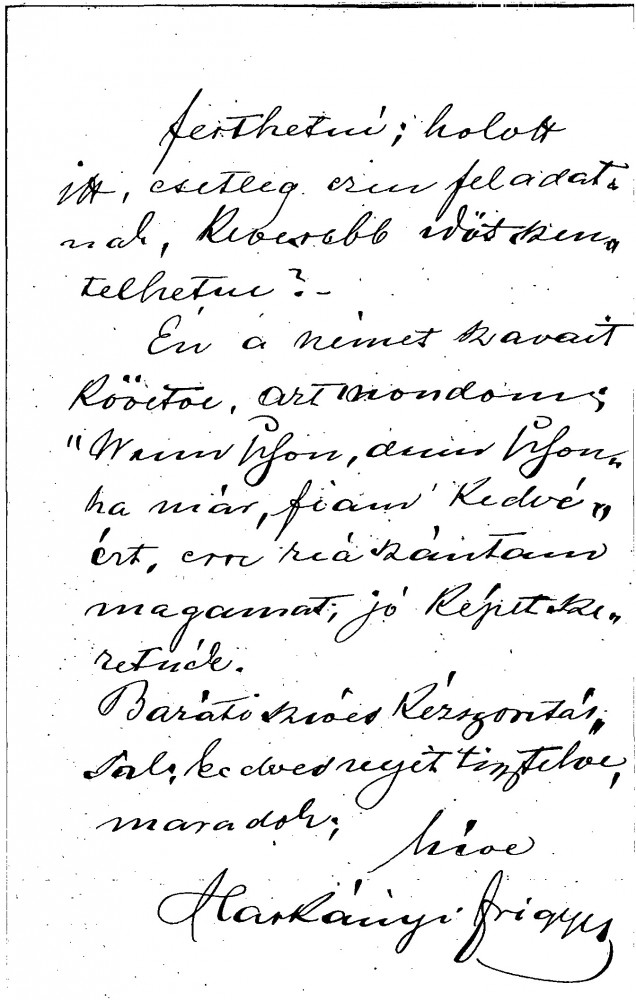 festhetni; holott
itt, esetleg ezen feladat„
nak, kevesebb időt szen„
telhetne?–
Én a német szavait
követve, azt mondom;
"Wenn schon, denn schon„
ha már, fiam' kedvé„
ért, erre reá szántam
magamat; jó képet sze„
retnék.
Baráti szives kézszorítás„
sal; kedves nejét tisztelve,
maradok;
híve
Harkányi Frigyes